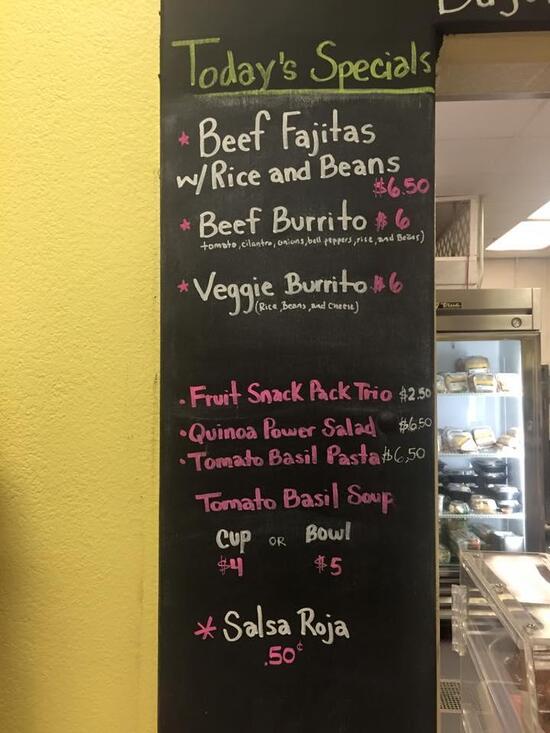 Today's Specials
* Beef Fajitas
w/Rice and Beans
$6.50
* Beef Burrito $6
tomato, cilantro, onions, bell peppers, rice, and Beans)
* Veggie Burrito $6
(Rice, Beans, and Cheese)
• Fruit Snack Pack Trio $2.50
• Quinoa Power Salad $6.50
• Tomato Basil Pasta $6.50
Tomato Basil Soup
Cup OR Bowl
$4 $5
* Salsa Roja
.50¢
True